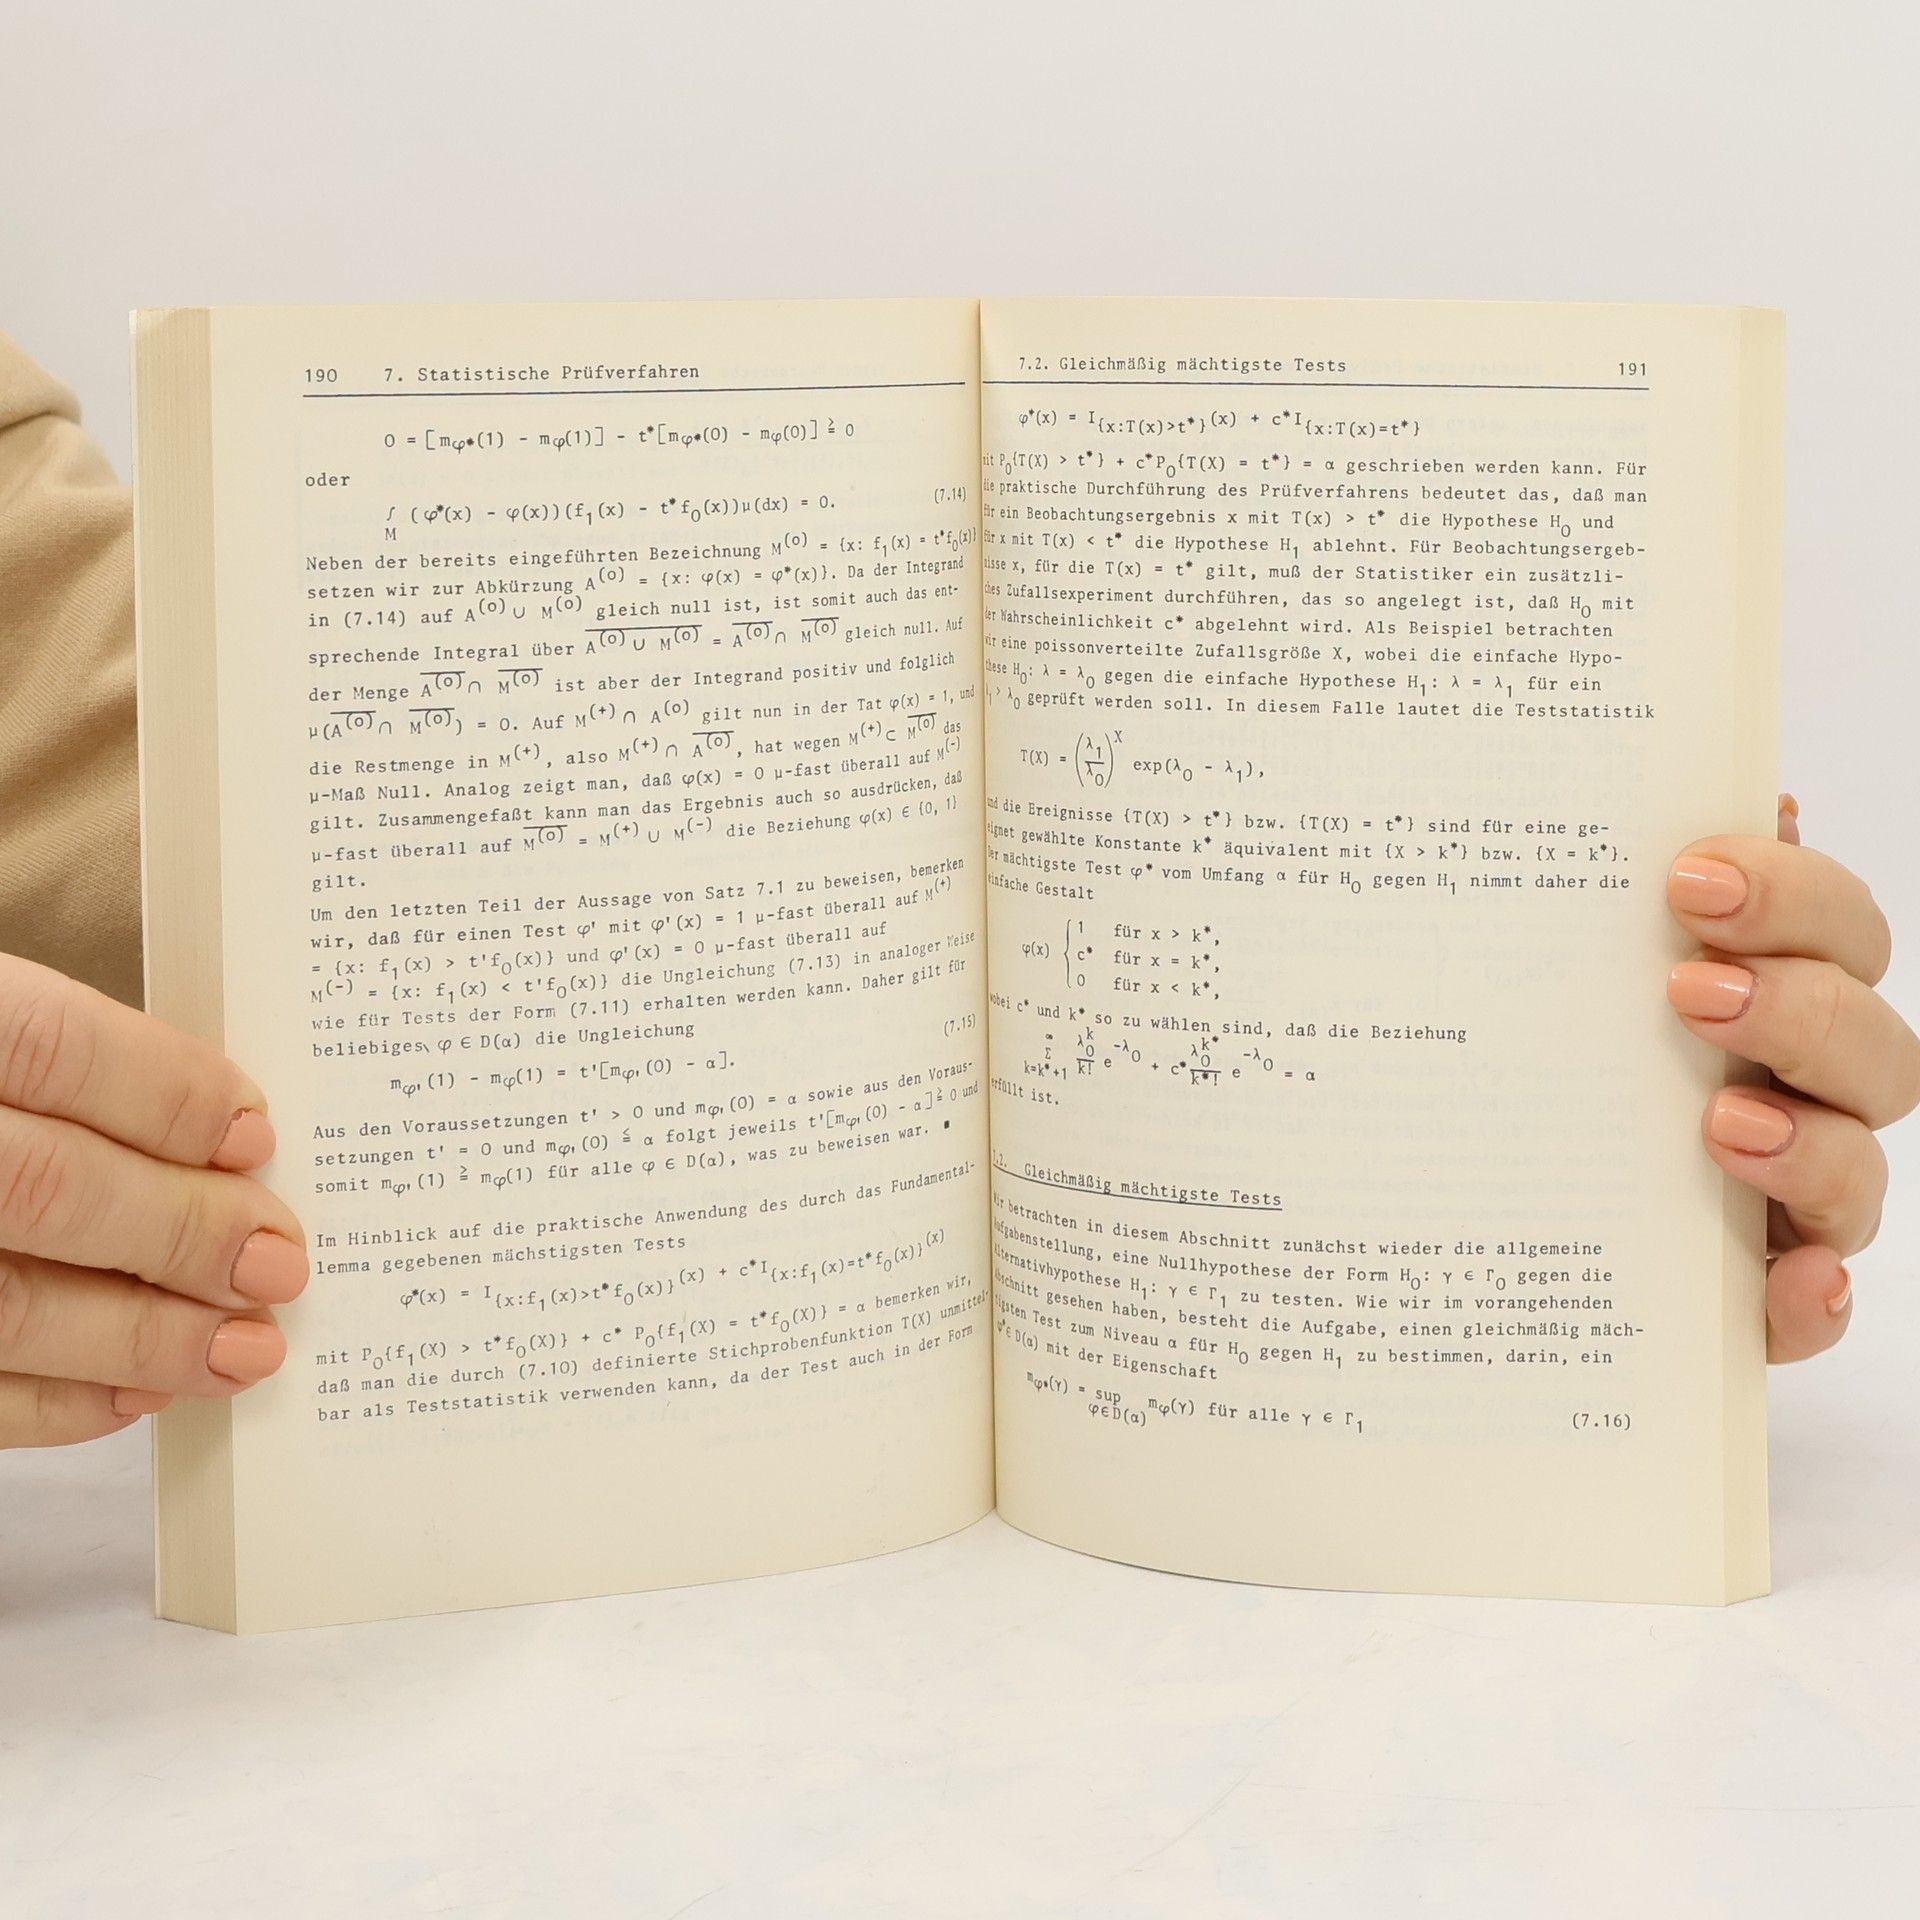 190 7. Statistische Prüfverfahren
0 = [mφ*(1) - mφ(1)] - t*[mφ*(0) - mφ(0)] ≧ 0
oder
∫ (φ*(x) - φ(x))(f₁(x) - t*f₀(x))μ(dx) = 0. (7.14)
M
Neben der bereits eingeführten Bezeichnung M⁽⁰⁾ = {x: f₁(x) = t*f₀(x)}
setzen wir zur Abkürzung A⁽⁰⁾ = {x: φ(x) = φ*(x)}. Da der Integrand
in (7.14) auf A⁽⁰⁾ ∪ M⁽⁰⁾ gleich null ist, ist somit auch das ent-
sprechende Integral über \overline{A⁽⁰⁾ ∪ M⁽⁰⁾} = \overline{A⁽⁰⁾} ∩ \overline{M⁽⁰⁾} gleich null. Auf
der Menge \overline{A⁽⁰⁾} ∩ \overline{M⁽⁰⁾} ist aber der Integrand positiv und folglich
μ(\overline{A⁽⁰⁾} ∩ \overline{M⁽⁰⁾}) = 0. Auf M⁽⁺⁾ ∩ A⁽⁰⁾ gilt nun in der Tat φ(x) = 1, und
die Restmenge in M⁽⁺⁾, also M⁽⁺⁾ ∩ \overline{A⁽⁰⁾}, hat wegen M⁽⁺⁾ ⊂ \overline{M⁽⁰⁾} das
μ-Maß Null. Analog zeigt man, daß φ(x) = 0 μ-fast überall auf M⁽⁻⁾
gilt. Zusammengefaßt kann man das Ergebnis auch so ausdrücken, daß
μ-fast überall auf \overline{M⁽⁰⁾} = M⁽⁺⁾ ∪ M⁽⁻⁾ die Beziehung φ(x) ∈ {0, 1}
gilt.
Um den letzten Teil der Aussage von Satz 7.1 zu beweisen, bemerken
wir, daß für einen Test φ' mit φ'(x) = 1 μ-fast überall auf M⁽⁺⁾
= {x: f₁(x) > t'f₀(x)} und φ'(x) = 0 μ-fast überall auf
M⁽⁻⁾ = {x: f₁(x) < t'f₀(x)} die Ungleichung (7.13) in analoger Weise
wie für Tests der Form (7.11) erhalten werden kann. Daher gilt für
beliebiges φ ∈ D(α) die Ungleichung
mφ'(1) - mφ(1) = t'[mφ'(0) - α]. (7.15)
Aus den Voraussetzungen t' > 0 und mφ'(0) = α sowie aus den Voraus-
setzungen t' = 0 und mφ'(0) ≦ α folgt jeweils t'[mφ'(0) - α] ≧ 0 und
somit mφ'(1) ≧ mφ(1) für alle φ ∈ D(α), was zu beweisen war. ▪
Im Hinblick auf die praktische Anwendung des durch das Fundamental-
lemma gegebenen mächstigsten Tests
φ*(x) = I{x:f₁(x)>t*f₀(x)}(x) + c*I{x:f₁(x)=t*f₀(x)}(x)
mit P₀{f₁(X) > t*f₀(X)} + c* P₀{f₁(X) = t*f₀(X)} = α bemerken wir,
daß man die durch (7.10) definierte Stichprobenfunktion T(X) unmittel-
bar als Teststatistik verwenden kann, da der Test auch in der Form
7.2. Gleichmäßig mächtigste Tests 191
φ*(x) = I{x:T(x)>t*}(x) + c*I{x:T(x)=t*}
mit P₀{T(X) > t*} + c*P₀{T(X) = t*} = α geschrieben werden kann. Für
die praktische Durchführung des Prüfverfahrens bedeutet das, daß man
für ein Beobachtungsergebnis x mit T(x) > t* die Hypothese H₀ und
für x mit T(x) < t* die Hypothese H₁ ablehnt. Für Beobachtungsergeb-
nisse x, für die T(x) = t* gilt, muß der Statistiker ein zusätzli-
ches Zufallsexperiment durchführen, das so angelegt ist, daß H₀ mit
der Wahrscheinlichkeit c* abgelehnt wird. Als Beispiel betrachten
wir eine poissonverteilte Zufallsgröße X, wobei die einfache Hypo-
these H₀: λ = λ₀ gegen die einfache Hypothese H₁: λ = λ₁ für ein
λ₁ > λ₀ geprüft werden soll. In diesem Falle lautet die Teststatistik
T(X) = (λ₁/λ₀)^X exp(λ₀ - λ₁),
und die Ereignisse {T(X) > t*} bzw. {T(X) = t*} sind für eine ge-
eignet gewählte Konstante k* äquivalent mit {X > k*} bzw. {X = k*}.
Der mächtigste Test φ* vom Umfang α für H₀ gegen H₁ nimmt daher die
einfache Gestalt
φ(x) { 1 für x > k*,
c* für x = k*,
0 für x < k*,
wobei c* und k* so zu wählen sind, daß die Beziehung
∞ Σ k=k*+1 λ₀^k/k! e^-λ₀ + c* λ₀^k*/k*! e^-λ₀ = α
erfüllt ist.
7.2. Gleichmäßig mächtigste Tests
Wir betrachten in diesem Abschnitt zunächst wieder die allgemeine
Aufgabenstellung, eine Nullhypothese der Form H₀: γ ∈ Γ₀ gegen die
Alternativhypothese H₁: γ ∈ Γ₁ zu testen. Wie wir im vorangehenden
Abschnitt gesehen haben, besteht die Aufgabe, einen gleichmäßig mäch-
tigsten Test zum Niveau α für H₀ gegen H₁ zu bestimmen, darin, ein
φ* ∈ D(α) mit der Eigenschaft
mφ*(γ) = sup mφ(γ) für alle γ ∈ Γ₁ (7.16)
φ∈D(α)